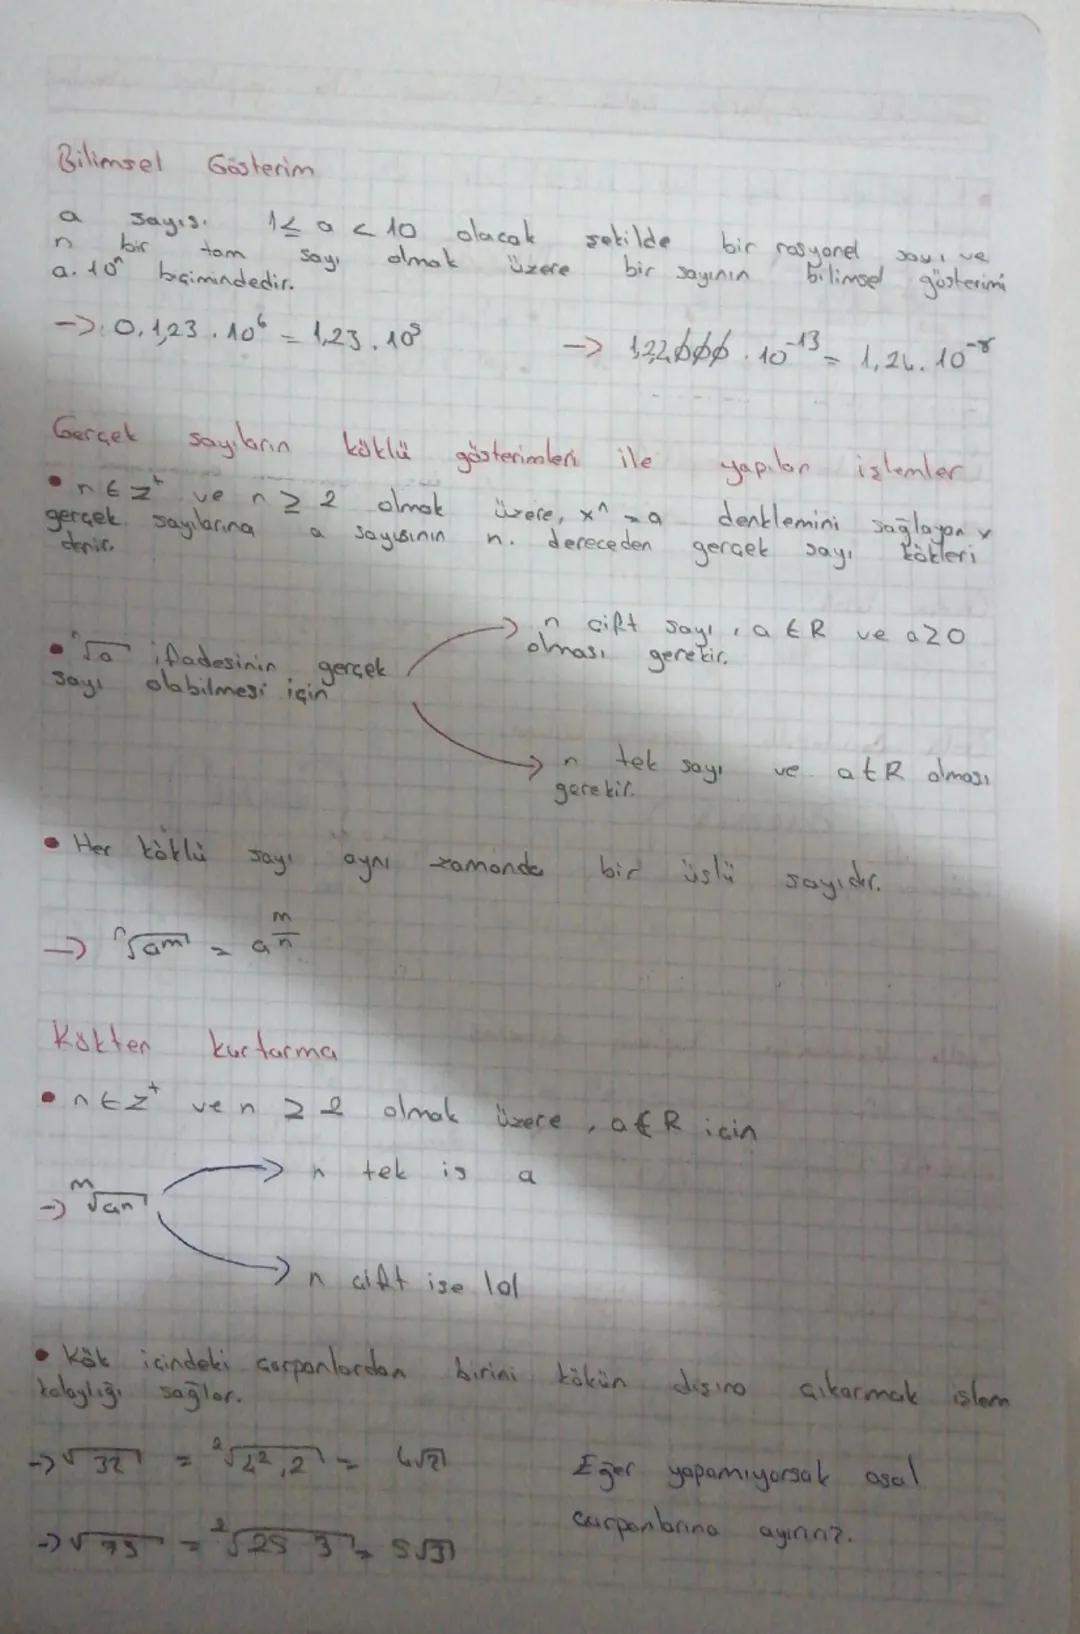 Bilimsel Gösterim
a sayısı 1 ≤ a < 10 olacak şekilde bir rasyonel sayı ve
n bir tam sayı olmak üzere bir sayının bilimsel gösterimi
a.10ⁿ biçimindedir.
→ 0,1,23 . 10⁶ = 1,23 . 10⁵
→ 10⁻¹³ = 10⁻⁸
Gerçek sayıların köklü gösterimleri ile yapılan işlemler
• n ∈ Z⁺ ve n ≥ 2 olmak üzere, xⁿ = a denklemini sağlayan x
gerçek sayılarına a sayısının n. dereceden gerçek sayı kökleri
denir.
• ⁿ√a ifadesinin gerçek
sayı olabilmesi için
→ n çift sayı, a ∈ R ve a ≥ 0
olması gerekir.
→ n tek sayı ve a ∈ R olması
gerekir.
• Her köklü sayı aynı zamanda bir üslü sayıdır.
→ ⁿ√aᵐ = a^(m/n)
Kökten kurtarma
• n ∈ Z⁺ ve n ≥ 2 olmak üzere, a ∈ R için
→ n tek is a
→ ᵐ√aⁿ
→ n çift ise |a|
• Kök içindeki çarpanlardan birini kökün dışına çıkarmak işlem
kolaylığı sağlar.
→ √32 = ²√4².2 = 4√2
Eğer yapamıyorsak asal
çarpanlarına ayırırız.
→ √75 = ²√25 3 = 5√3